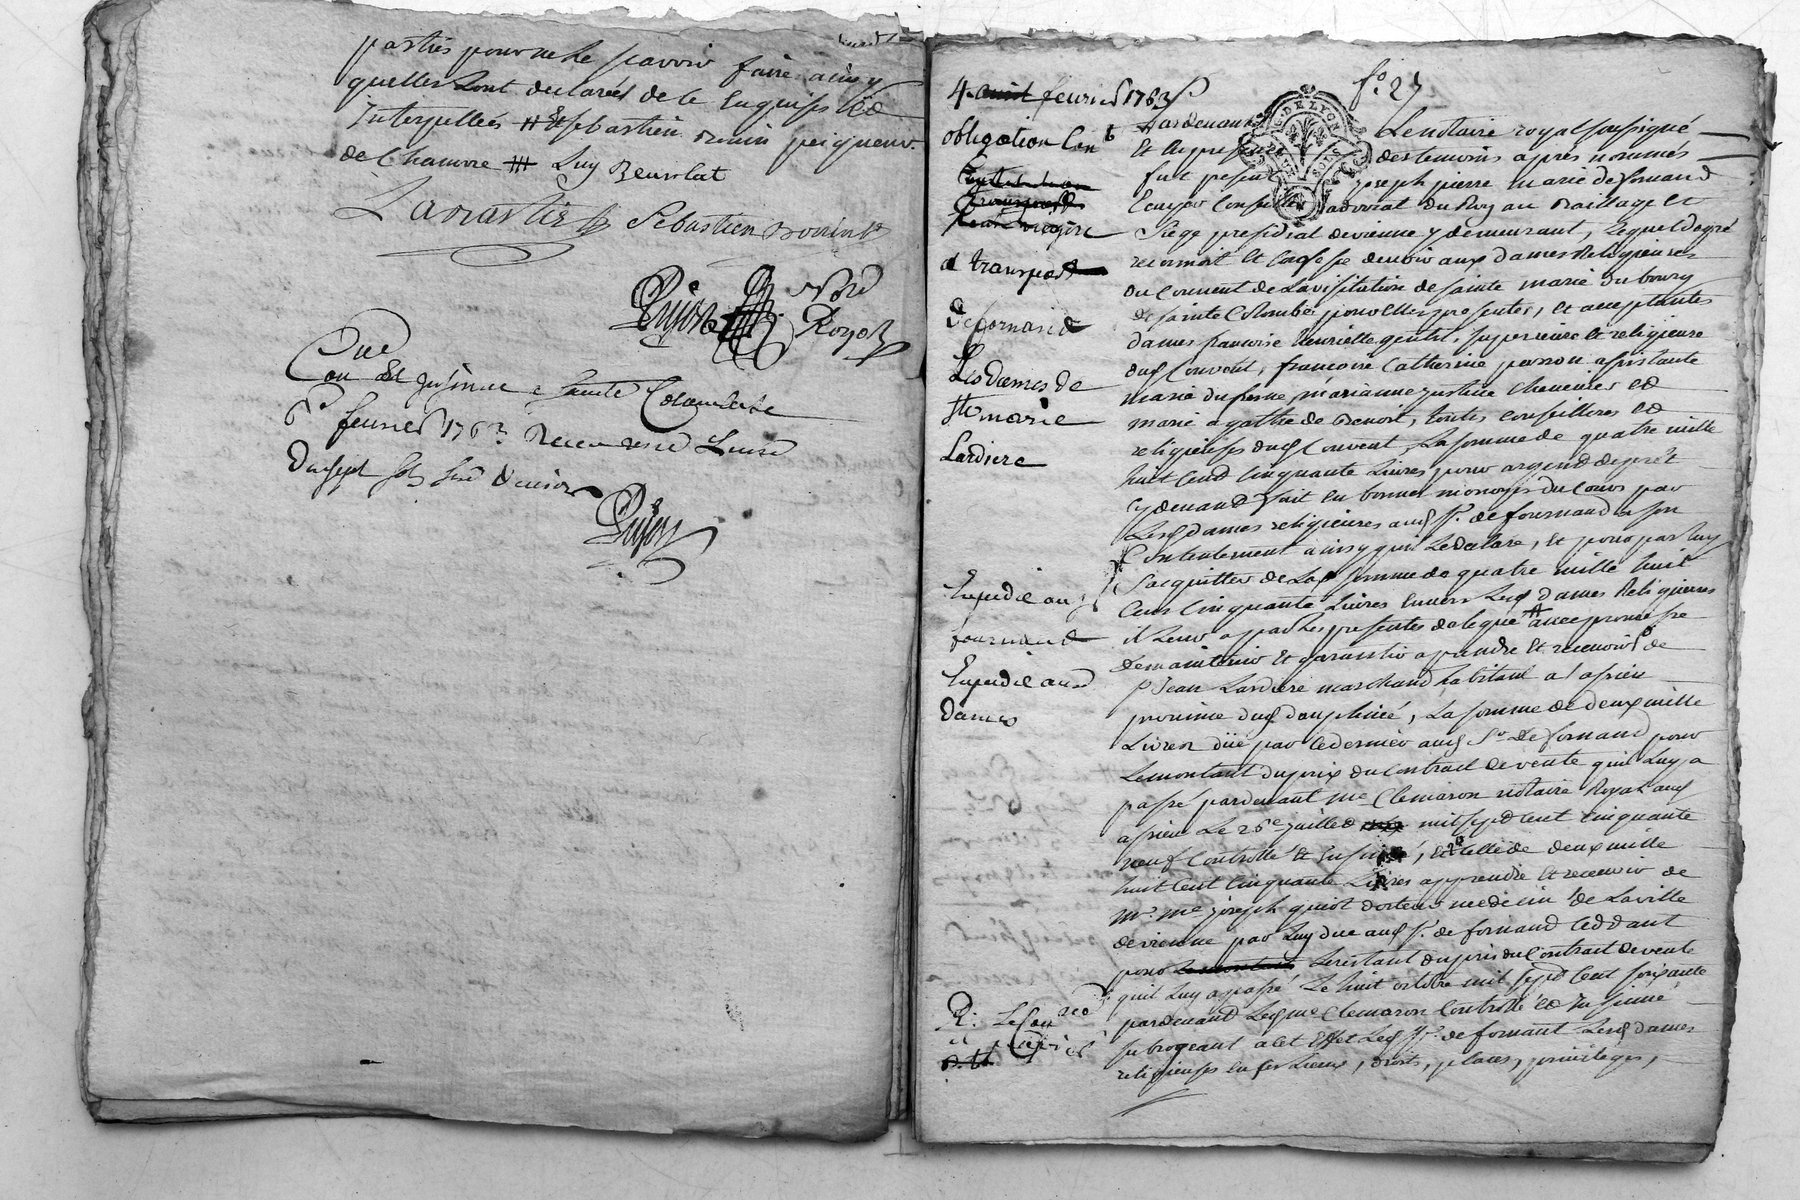 parties pour ne le scavoir faire ainsy
quelles sont declarées de ce Enquises et
Interpellées # Et sebastien peigneur
de Chanvre # Luy
Sebastien
Royer
Coné
Et Insinué a Sainte Colombe le
6e fevrier 1763 Receu
sept sols
Dujon
4 fevrier 1763
fo. 27
obligation Cont
a transport
De fornand
Les Dames de
Ste marie
Lardiere
Expedié aud sr
fournand
Expedié aux
Dames
R: Le Con
GDE LYON
Pardevant Le notaire royal soussigné
Et En presence des temoins après nommés
fut present joseph pierre marie de fornand
Ecuyer Conseiller advocat du Roy au Baillage et
Siege presidial de vienne y demeurant, Lequel de gré
reconnoit et Confesse devoir aux dames Religieuses
du Couvent de La visitation de sainte marie du bourg
de sainte Colombe pour Elles presentes, et acceptantes
dames francoise henriette gentil, superieure et religieuse
dud Couvent, francoise Catherine perron assistante
marie dufresne, marianne justine et
marie agathe de Benoit, toutes conseilleres et
religieuses dud Couvent, La somme de quatre mille
huit Cent Cinquante Livres pour argent de prêt
cy devant fait en bonnes monoyes du Cours par
Lesd dames religieuses aud sr. de fournand a son
Contentement ainsy quil Le declare, Et pour par luy
s'acquitter de Lad somme de quatre mille huit
Cent Cinquante Livres Envers Lesd dames Religieuses
il Leur a par Les presentes delegué # avec promesse
de maintenir Et garantir a prendre Et recevoir de
sr Jean Lardiere marchand habitant a
province dud dauphiné, La somme de deux mille
Livres düe par Ce dernier aud Sr de fornand pour
Le montant du prix du Contract de vente quil Luy a
passé pardevant me Clemaron notaire Royal aud
Le 26e juillet mil sept Cent Cinquante
neuf Controllé Et Insinué, et celle de deux mille
huit Cent Cinquante Livres apprendre Et recevoir de
mr. me joseph guiot docteur medecin de La ville
de vienne par Luy due aud sr. de fornand Ceddant
pour Le restant du prix du Contract de vente
quil Luy a passé Le huit octobre mil sept Cent soixante
pardevant Led me Clemaron Controllé et Insinué
subrogeant a Cet Effet Led sr. de fornant Lesd dames
religieuses En ses Lieux, droits, places, privileges,